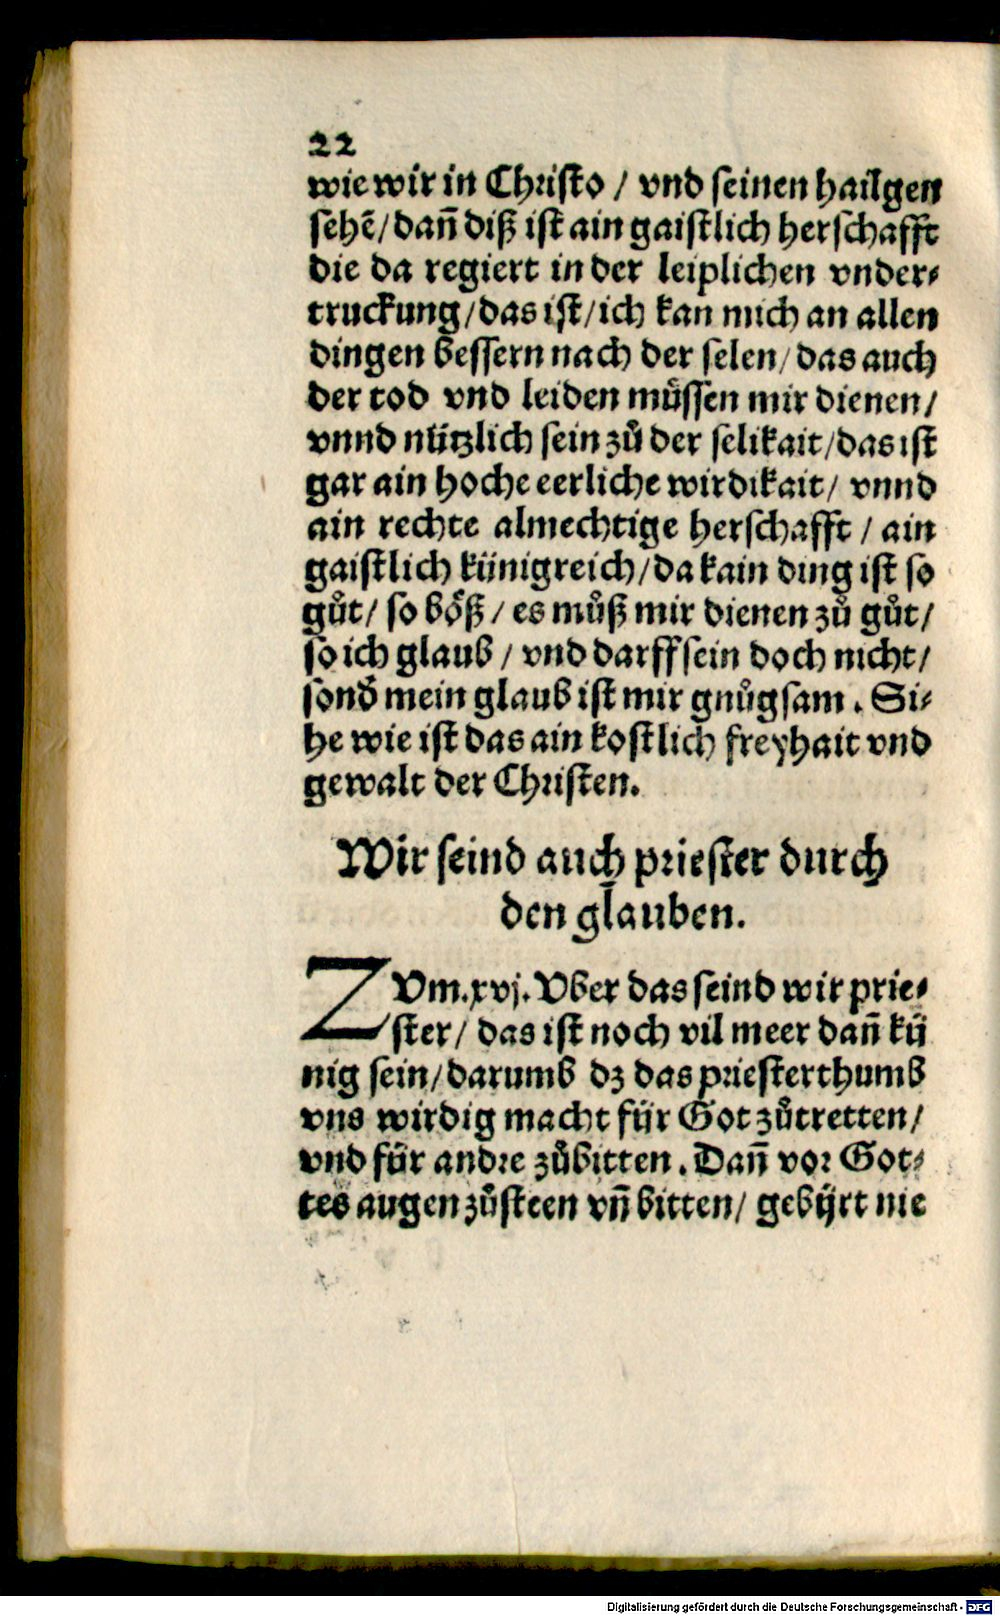 22
wie wir in Christo / vnd seinen hailgen
sehẽ / dañ diß ist ain gaistlich herschafft
die da regiert in der leiplichen vnder⸗
truckung / das ist / ich kan mich an allen
dingen bessern nach der selen / das auch
der tod vnd leiden muͤssen mir dienen /
vnnd nützlich sein zuͦ der selikait / das ist
gar ain hoche eerliche wirdikait / vnnd
ain rechte almechtige herschafft / ain
gaistlich künigreich / da kain ding ist so
guͦt / so boͤß / es muͦß mir dienen zuͦ guͦt /
so ich glaub / vnd darff sein doch nicht /
sonď mein glaub ist mir gnuͦgsam . Si⸗
he wie ist das ain kostlich freyhait vnd
gewalt der Christen.
Wir seind auch priester durch
den glauben.
ZVm .xvj. Vber das seind wir prie⸗
ster / das ist noch vil meer dañ kü
nig sein / darumb dz das priesterthumb
vns wirdig macht für Got zuͦtretten /
vnd für andre zuͦbitten . Dañ vor Got⸗
tes augen zuͦsteen vñ bitten / gebÿrt nie
Digitalisierung gefördert durch die Deutsche Forschungsgemeinschaft - DFG